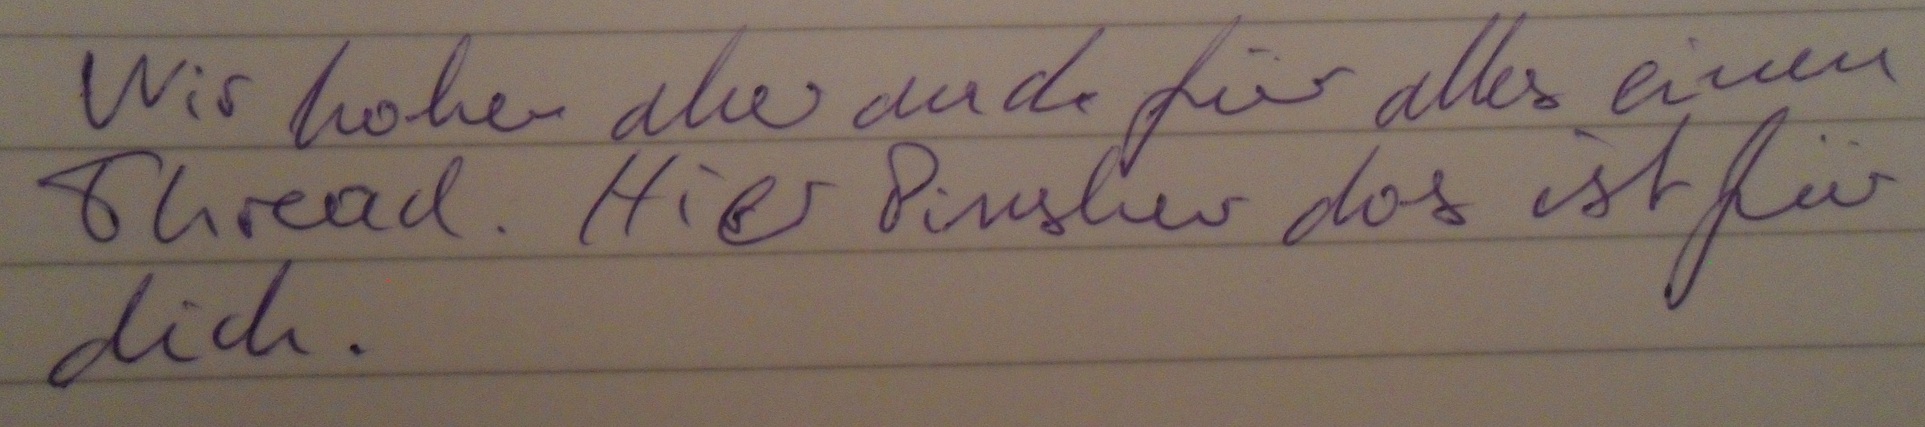 Wir haben aber auch für alles einen
Thread. Hier das ist für
dich.